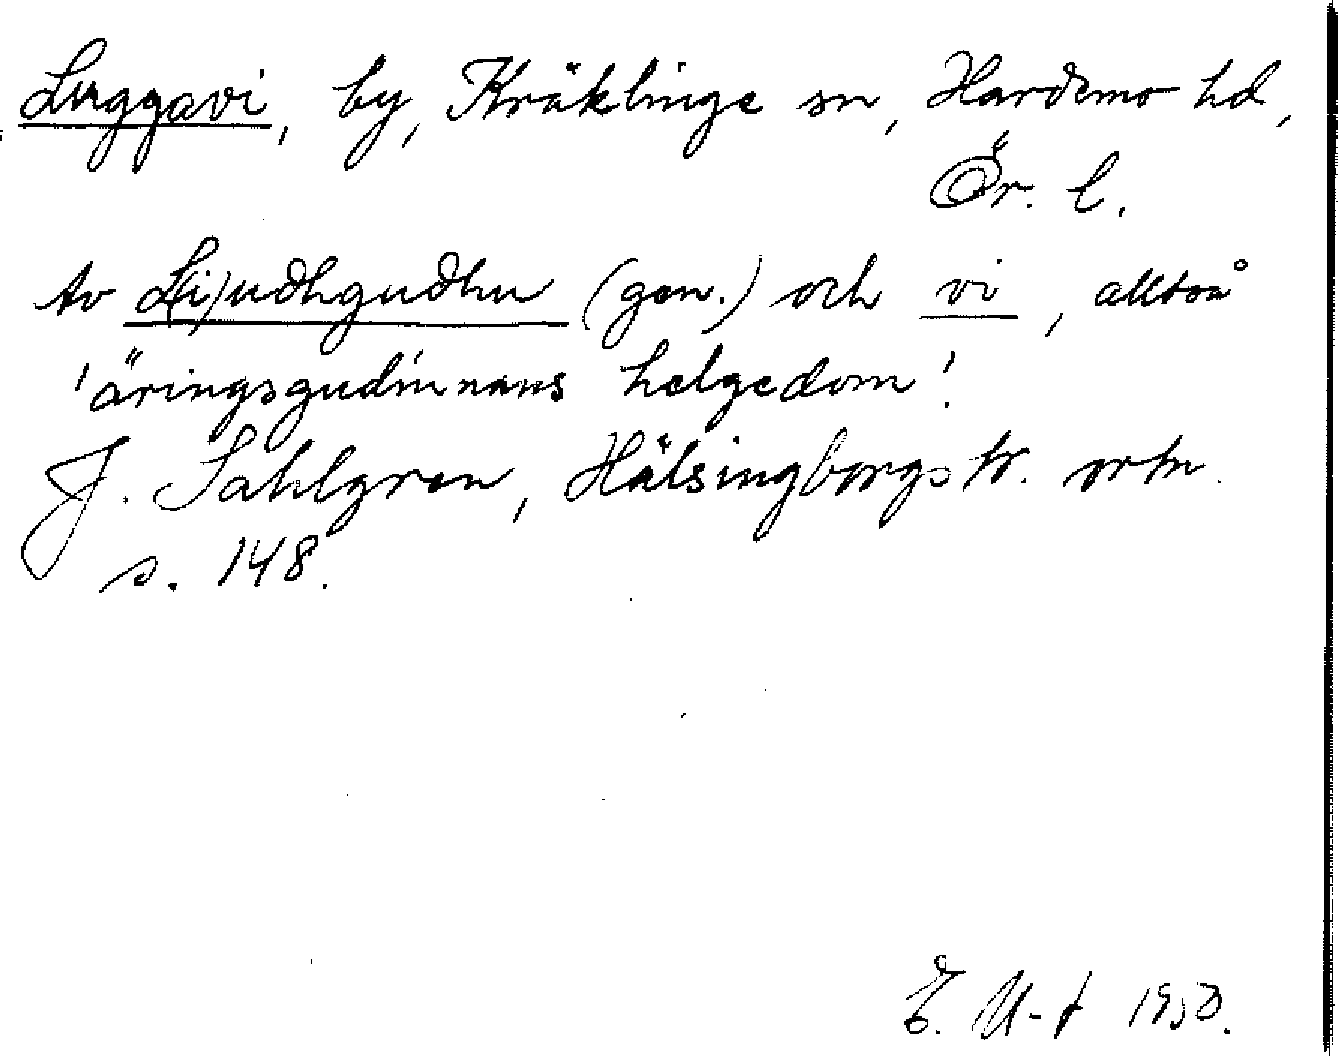 Luggavi, by, Kräklinge sn, Hardemo hd,
Ör. l.
Av L(i)udhgudhu (gen.) och vi, alltså
'äringsgudinnans helgedom'.
J. Sahlgren, Hälsingborgstr. ortn.
s. 148.
E. U-t 1950.